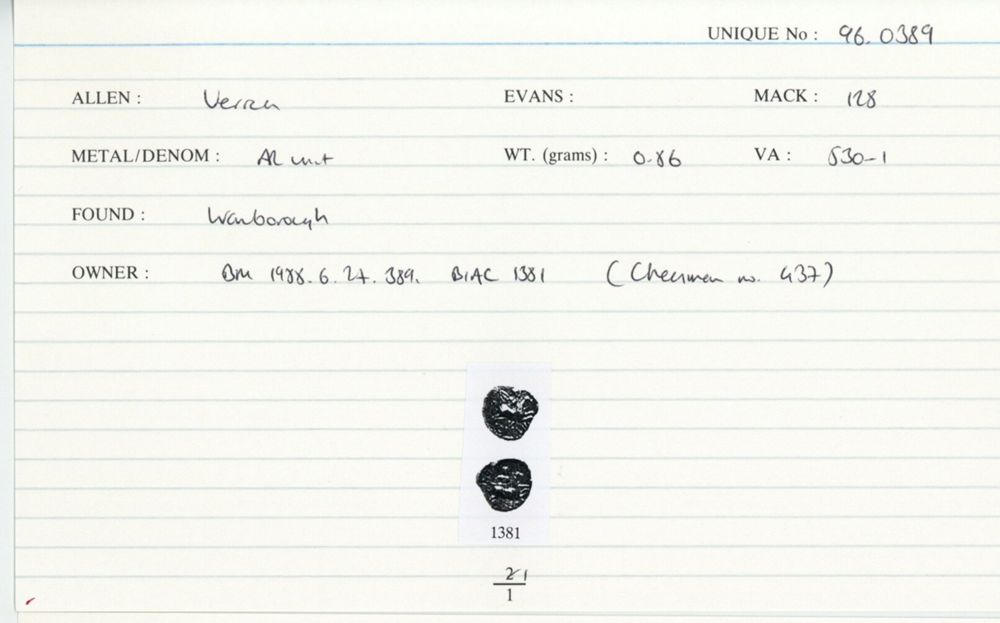 UNIQUE No : 96.0389
ALLEN : Verica EVANS : MACK : 128
METAL/DENOM : AR unit WT. (grams) : 0.86 VA : 530-1
FOUND : Wanborough
OWNER : BM 1988.6.27.389. BIAC 1381 (Cheesman no. 437)
1381
21
1